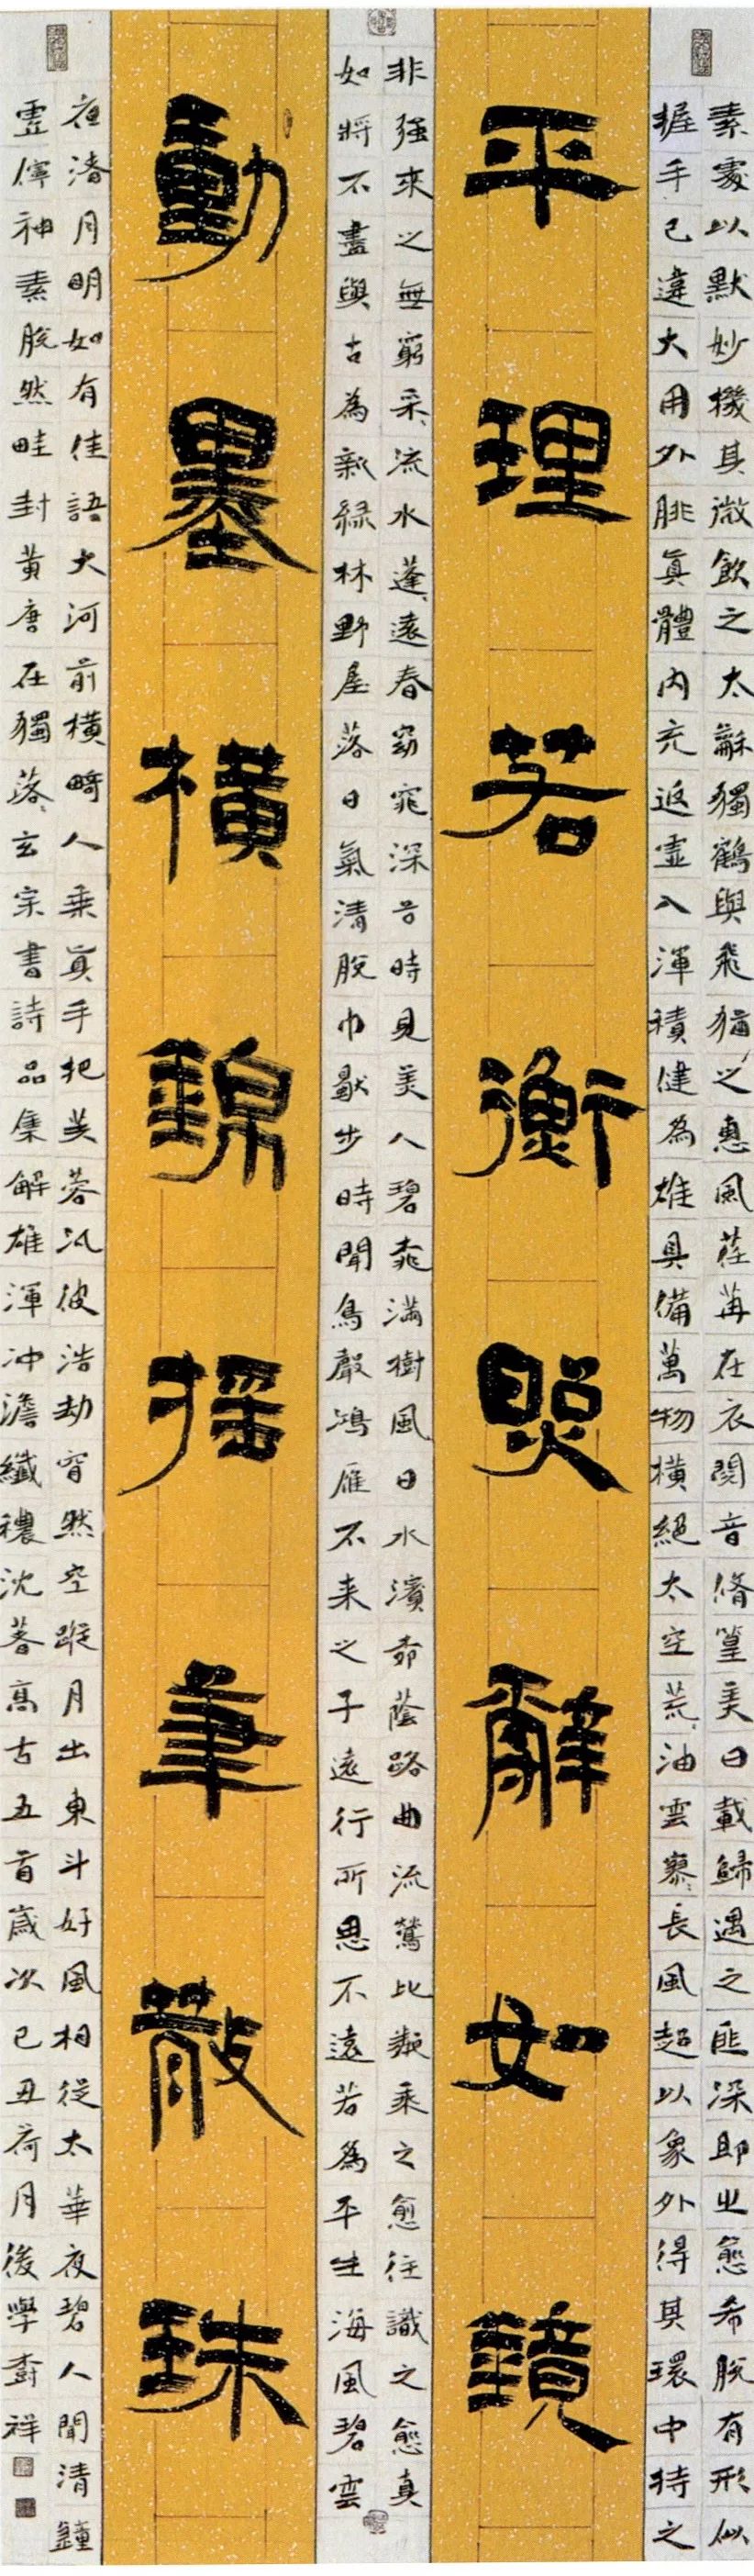 素處以默妙機其微飲之太龢獨鶴與飛猶之惠風荏苒在衣閱音脩篁美曰載歸遇之匪深即之愈希脫有形似
握手已違大用外腓真體內充返虛入渾積健為雄具備萬物橫絕太空荒〻油雲寥〻長風超以象外得其環中持之
平理若衡照辭如鏡
非強來之無窮采〻流水蓬〻遠春窈窕深谷時見美人碧桃滿樹風日水濱柳蔭路曲流鶯比鄰乘之愈往識之愈真
如將不盡與古為新綠林野屋落日氣清脫巾獨步時聞鳥聲鴻雁不來之子遠行所思不遠若為平生海風碧雲
動墨橫錦搖筆散珠
夜渚月明如有佳語大河前橫畸人乘真手把芙蓉汎彼浩劫窅然空蹤月出東斗好風相從太華夜碧人聞清鐘
虛佇神素脫然畦封黃唐在獨落〻玄宗書詩品集解雄渾沖澹纖穠沈著高古五首歲次己丑荷月後學祥